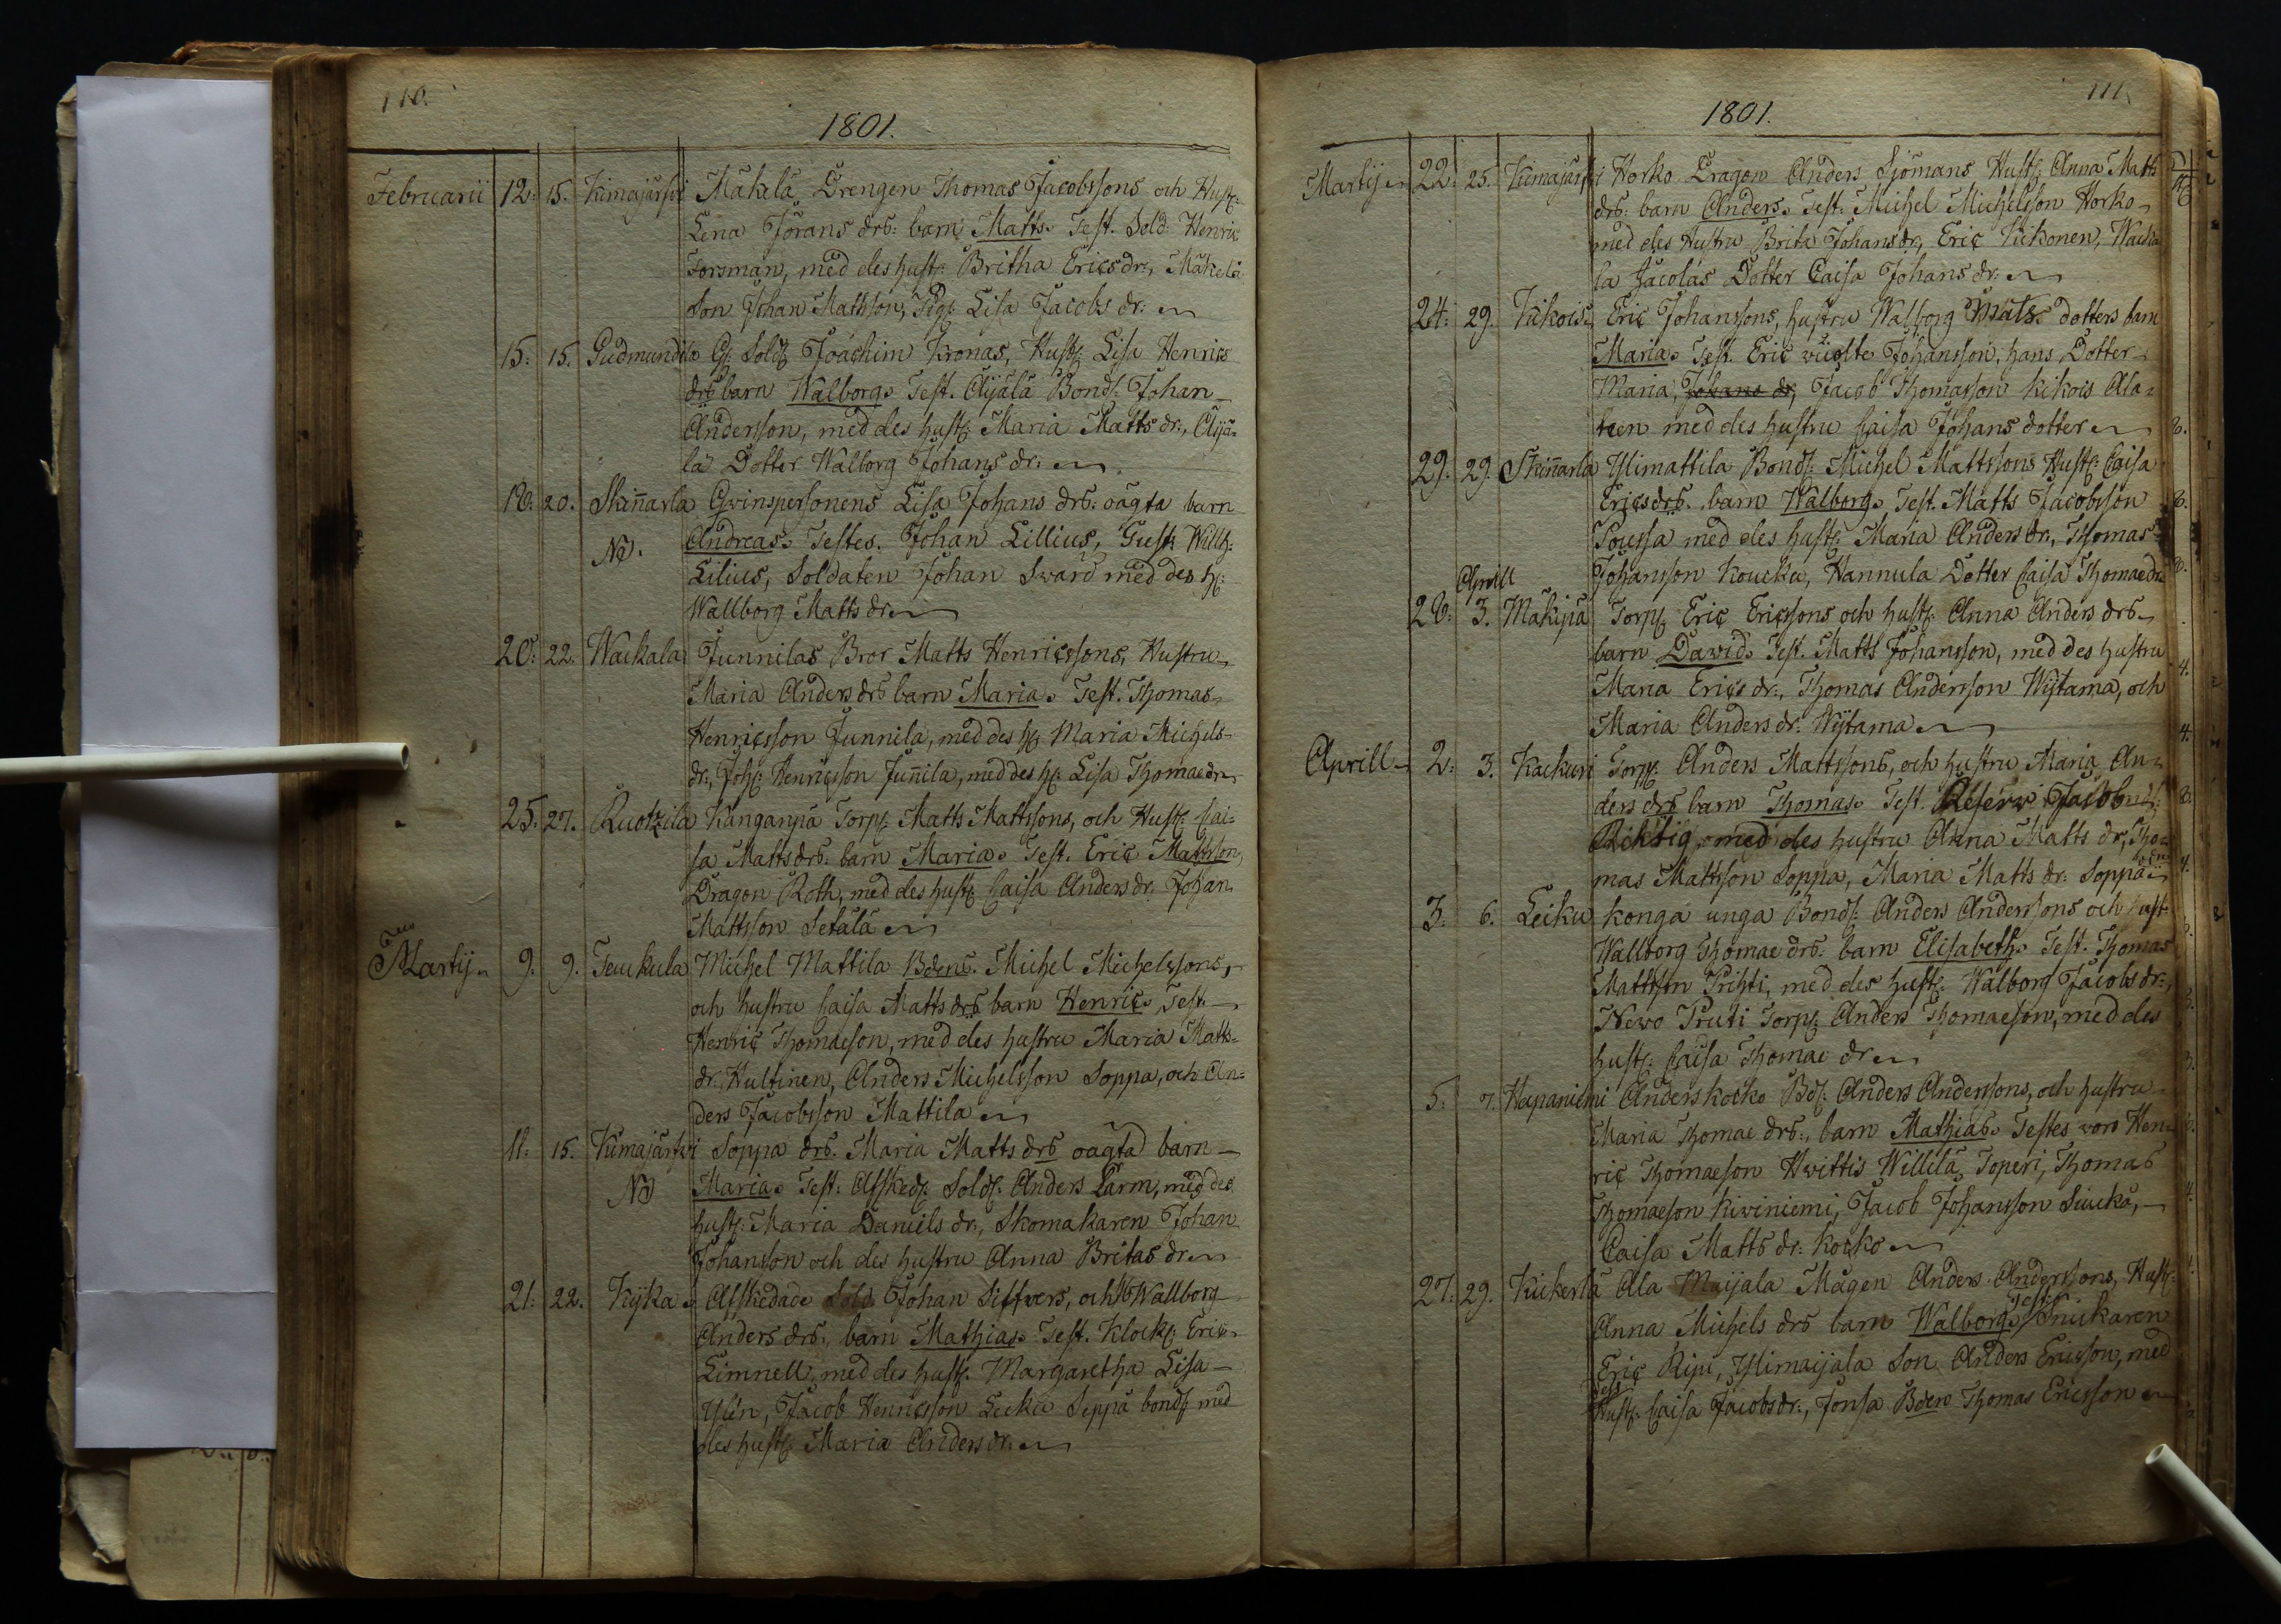 110.
1801.
Februarii 12. 15. Kimajärfvi Mäkelä Drengen Thomas Jacobssons och Hust:
Lena Jörans drs: barn Matts. Test. Sold: Henric
Forsman, med des hust: Britha Ericsdr:, Mäkelä
Son Johan Mattsson, Pig: Lisa Jacobs dr:
15. 15. Gudmundila G: Sold: Joachim Kronas, Hust: Lisa Henrics
drs barn Walborg. Test. Äijälä Bond: Johan
Andersson, med des hust: Maria Matts dr:, Äijä-
lä Dotter Walborg Johans dr:
18. 20. Skinnarla Qvinspersonens Lisa Johans drs: oägta barn
NB. Andreas. Testes. Johan Lillius, Gust: Willh:
Lilius, Soldaten Johan Swärd med des h:
Wallborg Matts dr
20. 22. Wackala Junnilas Bror Matts Henricssons, Hustru
Maria Anders drs barn Maria. Test. Thomas
Henricsson Junnila, med des h: Maria Michels-
dr:, Joh: Henricsson Junnila, med des h: Lisa Thomae dr
25. 27. Ruotzila Kanganpä Torp: Matts Mattssons, och Hust: Cai-
sa Matts drs: barn Maria. Test. Eric Mattsson,
Dragon Roth, med des hust: Caisa Anders dr: Johan
Mattsson Setälä
Martij 9. 9. Teuckula Michel Mattila Bdens. Michel Michelssons,
och hustru Caisa Matts drs barn Henric. Test.
Henric Thomaeson, med des hustru Maria Matts-
dr: Hultinen, Anders Michelsson Soppa, och An-
ders Jacobsson Mattila
11. 15. Kimajärfvi Soppa drs. Maria Matts drs oägta barn
NB Maria. Test: Afsked: Sold: Anders Larm, med des
hust: Maria Daniels dr:, Skomakaren Johan
Johansson och des hustru Anna Britas dr
21. 22. Kijka Afskedade Sold Johan Siffvers, och H Wallborg
Anders drs:, barn Mathias. Test. Klock: Eric
Limnell, med des hust: Margaretha Lisa
Ylén, Jacob Henricsson Leeku Seppä bond: med
des hust: Maria Anders dr:
111.
1801.
Martij 22. 25. Kimajärfvi Horko Dragon Anders Sjömans Hust: Anna Matts
drs: barn Anders. Test. Michel Michelsson Horko
med des Hustru Brita Johansdr, Eric Kikonen, Wacka
la Jacolas Dotter Caisa Johans dr:
24. 29. Kikois Eric Johanssons, hustru Walborg Mats dotters barn
Maria. Test. Eric Johansson, hans Dotter
Maria, Johans dr, Jacob Thomasson Kikois Ala-
med des hustru Caisa Johans dotter
29. 29. Skinnarla Ylimattila Bond: Michel Mattssons Hust: Caisa
Ericsdrs. barn Walborg. Test. Matts Jacobsson
Poussa med des hust: Maria Anders dr:, Thomas
Johansson Koucku, Hannula Dotter Caisa Thomae dr
Aprill
28. 3. Mäkipä Torp: Eric Ericssons och hust: Anna Anders drs
barn Dawid. Test. Matts Johansson, med des hustru
Maria Erics dr:, Thomas Andersson Wijtama, och
Maria Anders dr: Wijtama
Aprill 2. 3. Kackuri Torp: Anders Mattssons, och hustru Maria An-
ders drs barn Thomas. Test. Reserv: Jacob
Richtig med des hustru Anna Matts dr, Tho-
mas Mattsson Soppa, Maria Matts dr: Soppa
3. 6. Leeku Konga unga Bond: Anders Anderssons och hust
Wallborg Thomae drs: barn Elisabeth. Test. Thomas
Mattsson Prihti, med des hust: Walborg Jacobs dr:,
Newo Pruti Torp: Anders Thomaeson, med des
hust: Caisa Thomae dr
5. 7. Hapaniemi Anderskocko Bd: Anders Anderssons, och hustru
Maria Thomae drs:, barn Mathias. Testes woro Hen-
ric Thomaeson Hwittis Willilä, Toperi, Thomas
Thomaeson Kiviniemi, Jacob Johansson Siucko,
Caisa Matts dr: Kocko
27. 29. Kuckerla Ala Maijala Mågen Anders Anderssons, Hust:
Anna Michels drs barn Walborg. Test: Snickaren
Eric Ripi, Ylimaijala Son Anders Ericsson, med
des Hust: Caisa Jacobsdr:, Jonsa Bden Thomas Ericsson